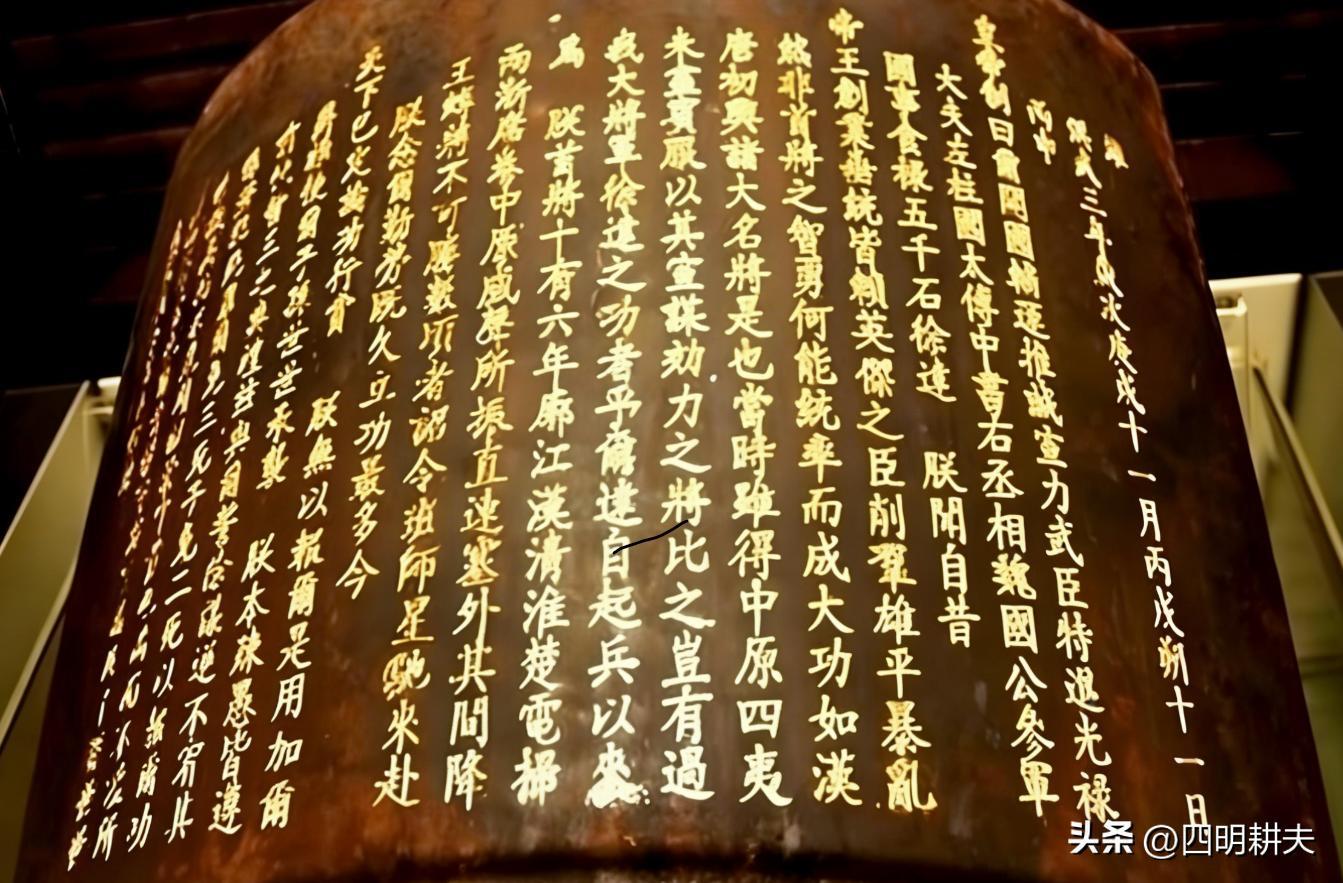 維
洪武三年歲次庚戌十一月丙戌朔十一日
丙申
皇帝制曰開國輔運推誠宣力武臣特進光祿
大夫左柱國太傅中書右丞相魏國公參軍
國事食祿五千石徐達 朕聞自昔
帝王創業垂統皆賴英傑之臣削羣雄平暴亂
然非首將之智勇何能統率而成大功如漢
唐初興諸大名將是也當時雖得中原四夷
未盡賓服以其宣謀効力之將比之豈有過
我大將軍徐達之功者乎爾達自起兵以來
為 朕首將十有六年廓江漢清淮楚電掃
兩浙席卷中原威聲所振直連塞外其間降
王縛將不可勝數頃者詔令班師星馳來赴
朕念爾勤勞既久立功最多今
天下已定論功行賞 朕無以報爾是用加爾
爵祿使爾子孫世世承襲 朕本疎愚皆遵
之典禮茲與爾誓除謀逆不宥其
三死子免二死以報爾功
頭条 @四明耕夫